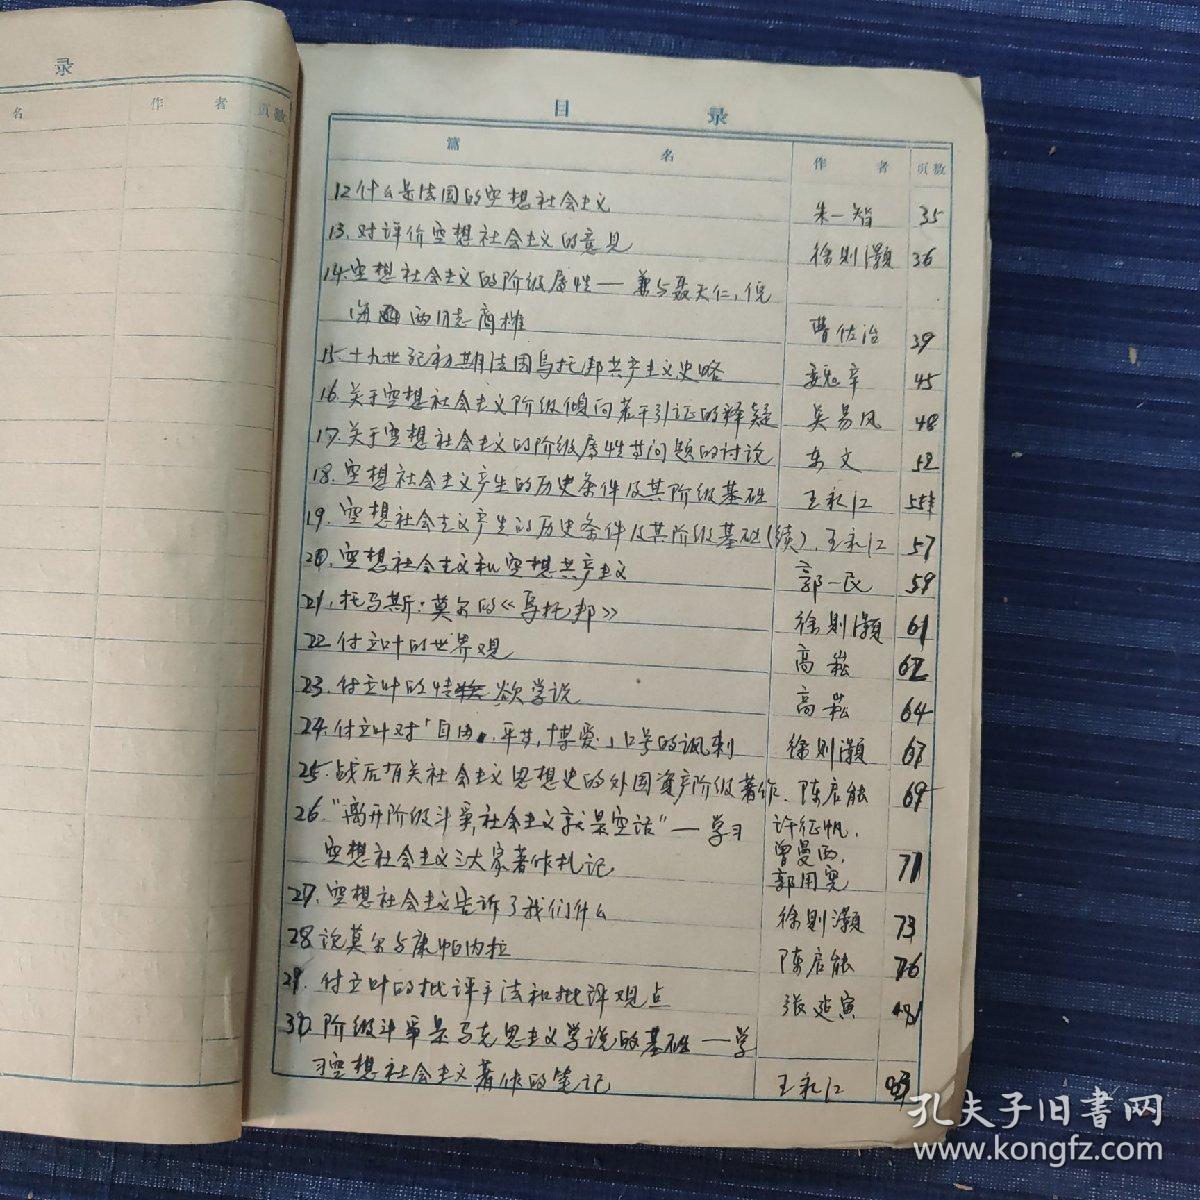 录
名 作 者 页数
目 录
篇 名 作 者 页数
12 什么是法国的空想社会主义 朱一智 35
13. 对评价空想社会主义的意见 徐则灏 36
14. 空想社会主义的阶级属性——兼与聂大仁、倪
海 两同志商榷 曹佐治 39
15. 十九世纪初期法国乌托邦共产主义史略 辛 45
16. 关于空想社会主义阶级倾向若干引证的释疑 吴易风 48
17. 关于空想社会主义的阶级属性等问题的讨论 东文 52
18. 空想社会主义产生的历史条件及其阶级基础 王永江
19. 空想社会主义产生的历史条件及其阶级基础(续). 王永江 57
20. 空想社会主义和空想共产主义 郭一民 59
21. 托马斯·莫尔的《乌托邦》 徐则灏 61
22. 付立叶的世界观 高崧 62
23. 付立叶的情欲学说 高崧 64
24. 付立叶对「自由、平等,博爱」口号的讽刺 徐则灏 67
25. 战后有关社会主义思想史的外国资产阶级著作. 陈启能 69
26. "离开阶级斗争,社会主义就是空话"——学习 许征帆,
空想社会主义三大家著作札记 曾曼西,
郭用宪 71
27. 空想社会主义告诉了我们什么 徐则灏 73
28 论莫尔与康帕内拉 陈启能 76
29. 付立叶的批评手法和批评观点 张延寅
30. 阶级斗争是马克思主义学说的基础——学
习空想社会主义著作的笔记 王永江
孔夫子旧书网
www.kongfz.com